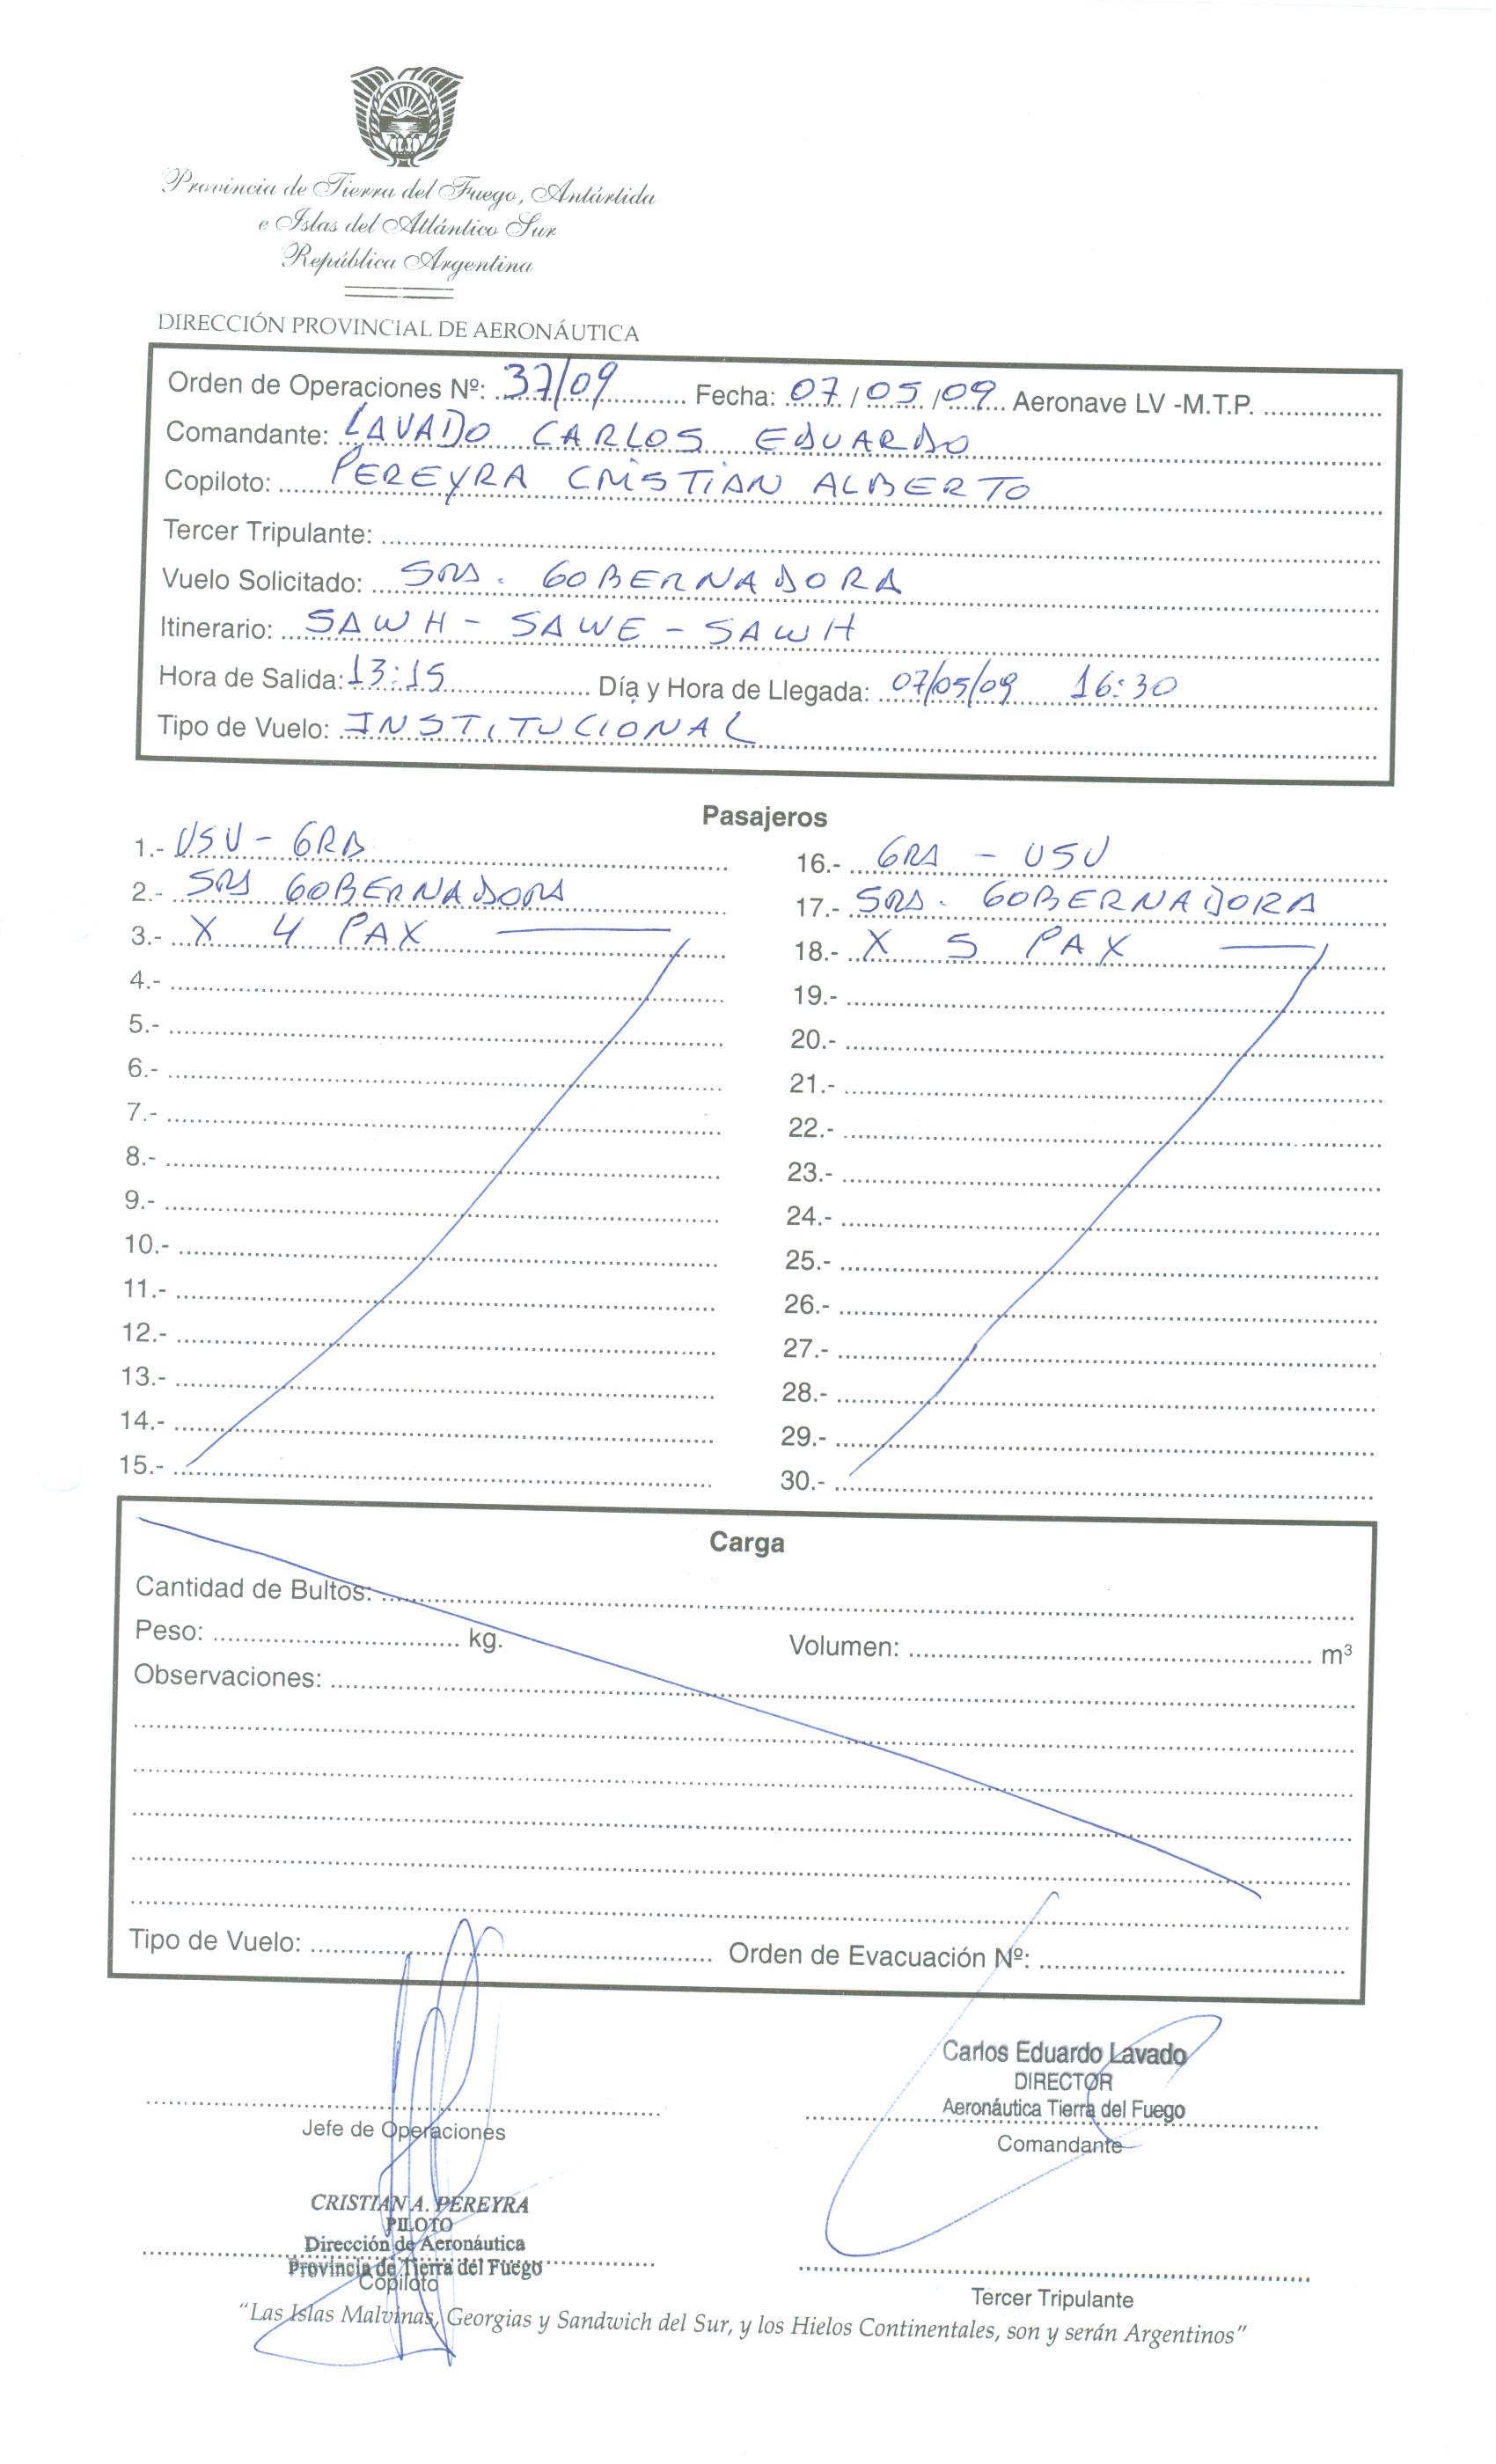 Provincia de Tierra del Fuego, Antártida
e Islas del Atlántico Sur
República Argentina
DIRECCIÓN PROVINCIAL DE AERONÁUTICA
Orden de Operaciones Nº: 37/09 Fecha: 07/05/09 Aeronave LV -M.T.P.
Comandante: LAVADO CARLOS EDUARDO
Copiloto: PEREYRA CRISTIAN ALBERTO
Tercer Tripulante:
Vuelo Solicitado: SRA. GOBERNADORA
Itinerario: SAWH - SAWE - SAWH
Hora de Salida: 13:15 Día y Hora de Llegada: 07/05/09 16:30
Tipo de Vuelo: INSTITUCIONAL
Pasajeros
1.- USU - GRA
2.- SRA GOBERNADORA
3.- X 4 PAX
4.-
5.-
6.-
7.-
8.-
9.-
10.-
11.-
12.-
13.-
14.-
15.-
16.- GRA - USU
17.- SRA. GOBERNADORA
18.- X 5 PAX
19.-
20.-
21.-
22.-
23.-
24.-
25.-
26.-
27.-
28.-
29.-
30.-
Carga
Cantidad de Bultos:
Peso: kg. Volumen: m³
Observaciones:
Tipo de Vuelo: Orden de Evacuación Nº:
Jefe de Operaciones
Carlos Eduardo Lavado
DIRECTOR
Aeronáutica Tierra del Fuego
Comandante
CRISTIAN A. PEREYRA
PILOTO
Dirección de Aeronáutica
Provincia de Tierra del Fuego
Copiloto
Tercer Tripulante
"Las Islas Malvinas, Georgias y Sandwich del Sur, y los Hielos Continentales, son y serán Argentinos"